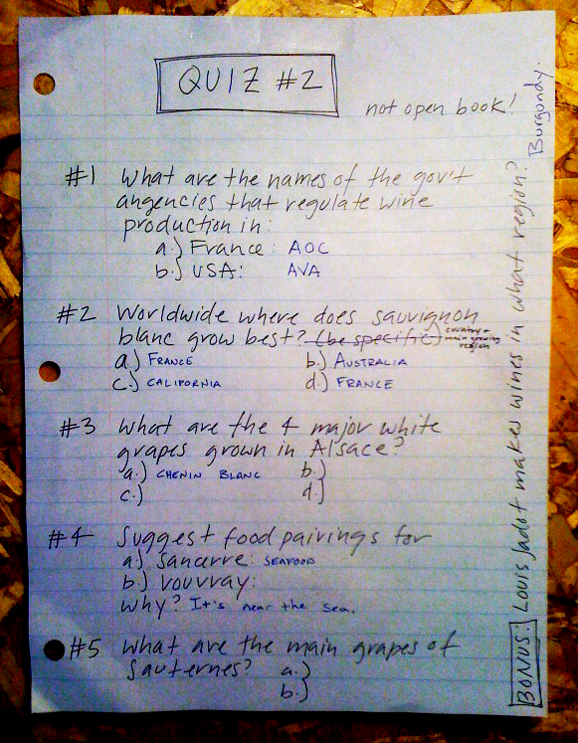 QUIZ #2
not open book!
#1 What are the names of the gov't
angencies that regulate wine
production in:
a.) France: AOC
b.) USA: AVA
#2 Worldwide where does sauvignon
blanc grow best? (be specific) country + main growing region
a.) FRANCE b.) AUSTRALIA
c.) CALIFORNIA d.) FRANCE
#3 What are the 4 major white
grapes grown in Alsace?
a.) CHENIN BLANC b.)
c.) d.)
#4 Suggest food pairings for
a.) Sancerre: SEAFOOD
b.) Vouvray:
Why? It's near the sea.
#5 What are the main grapes of
Sauternes? a.)
b.)
BONUS: Louis Jadot makes wines in what region? Burgondy.